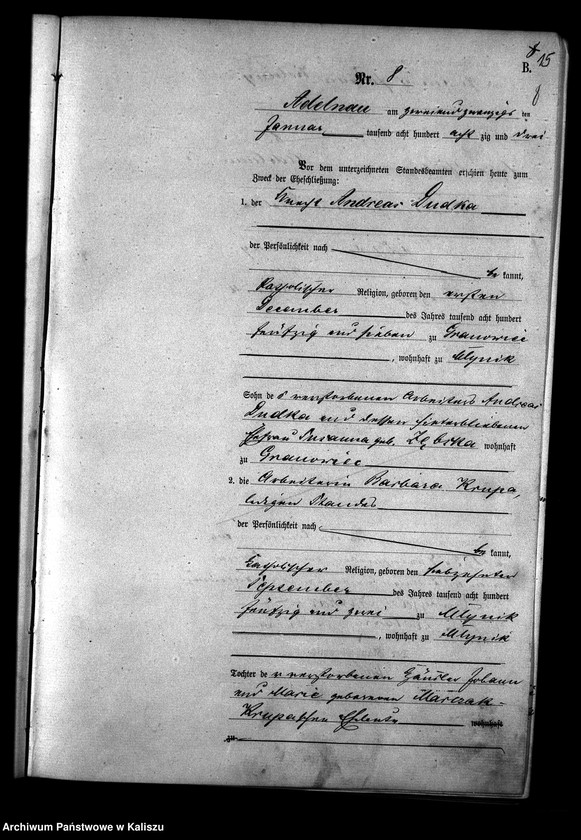 15
B.
Nr. 8
8
Adelnau am zweiundzwanzigs ten
Januar tausend acht hundert acht zig und drei
Vor dem unterzeichneten Standesbeamten erschien heute zum
Zweck der Eheschließung:
1. der Knecht Andreas Dudka
der Persönlichkeit nach
be kannt,
katholischer Religion, geboren den ersten
December des Jahres tausend acht hundert
fünfzig und sieben zu Granowiec
, wohnhaft zu Mlynik
Sohn de s verstorbenen Arbeiters Andreas
Dudka und dessen hinterbliebenen
Ehefrau Susanna geb. wohnhaft
zu Granowiec
2. die Arbeiterin Barbara Krupa,
ledigen Standes
der Persönlichkeit nach
be kannt,
katholischer Religion, geboren den siebzehnten
September des Jahres tausend acht hundert
fünfzig und zwei zu Mlynik
, wohnhaft zu Mlynik
Tochter de r verstorbenen Häusler Johann
und Marie geborenen Marczak-
Krupaschen Eheleute wohnhaft
zu
Archiwum Państwowe w Kaliszu